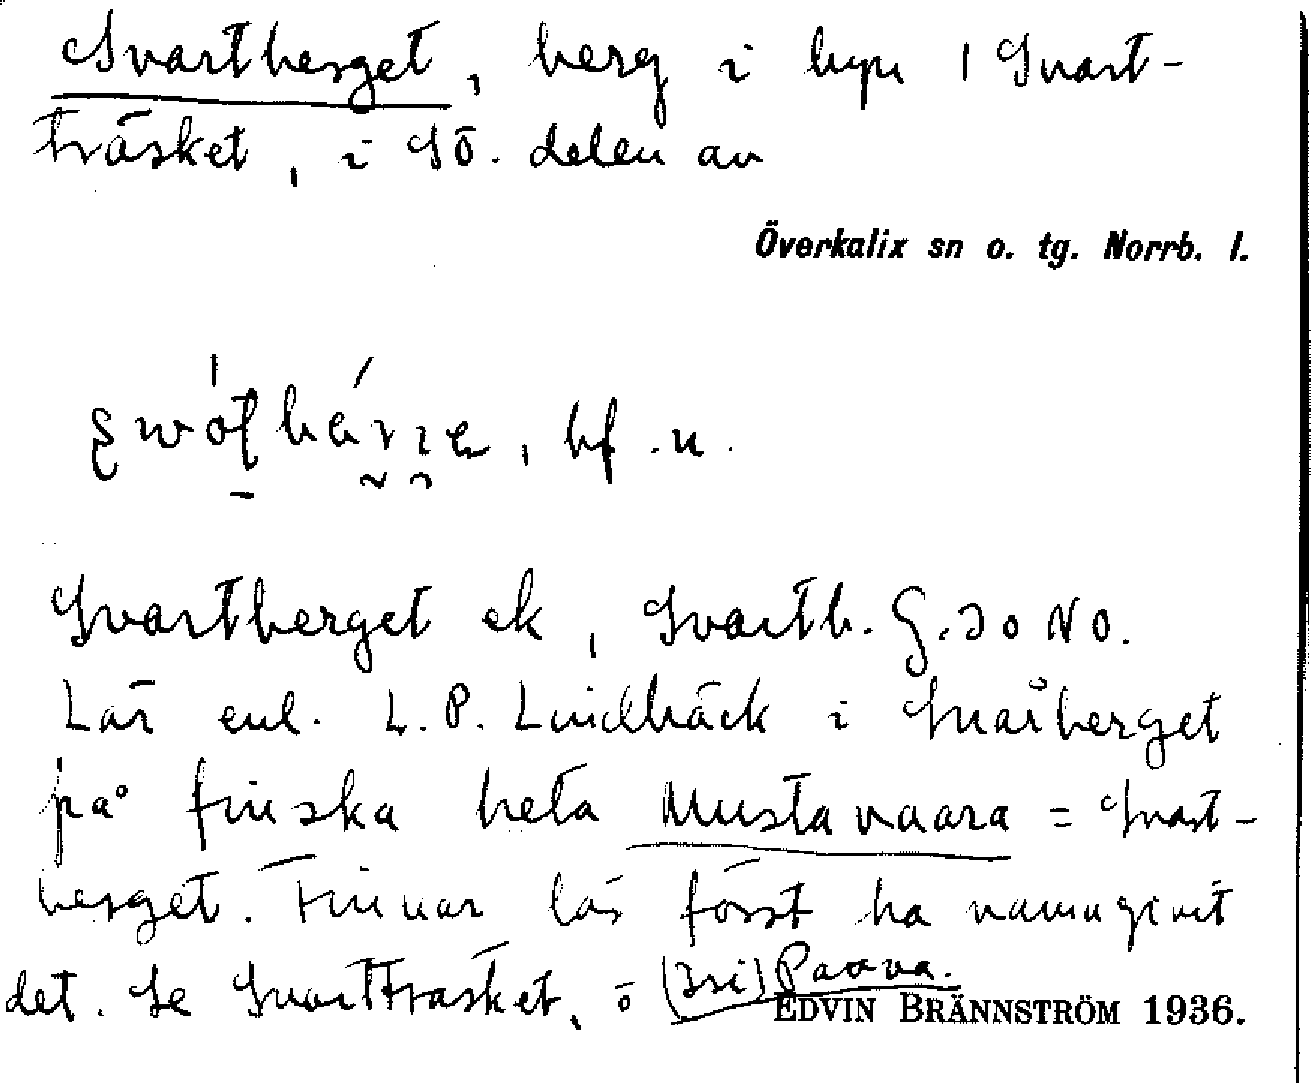 Svartberget, berg i byn 1 Svart-
träsket, i SÖ. delen av
Överkalix sn o. tg. Norrb. l.
bf. n.
Svartberget ek, Svartb. G. 30 NO.
Lär enl. L. P. Lindbäck i Snårberget
på finska heta Mustavaara = Svart-
berget. Finnar lär först ha namngivit
det. Se Svartträsket, o Paavo.
EDVIN BRÄNNSTRÖM 1936.